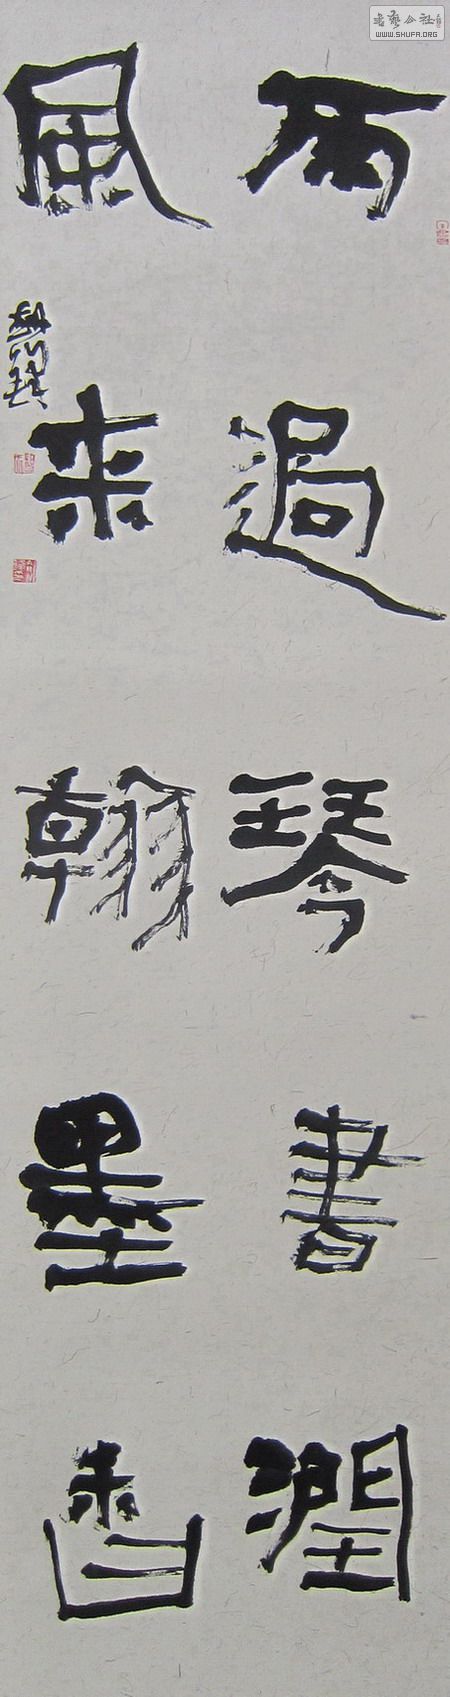 雨過琴書潤
風来翰墨香
書藝公社
WWW.SHUFA.ORG